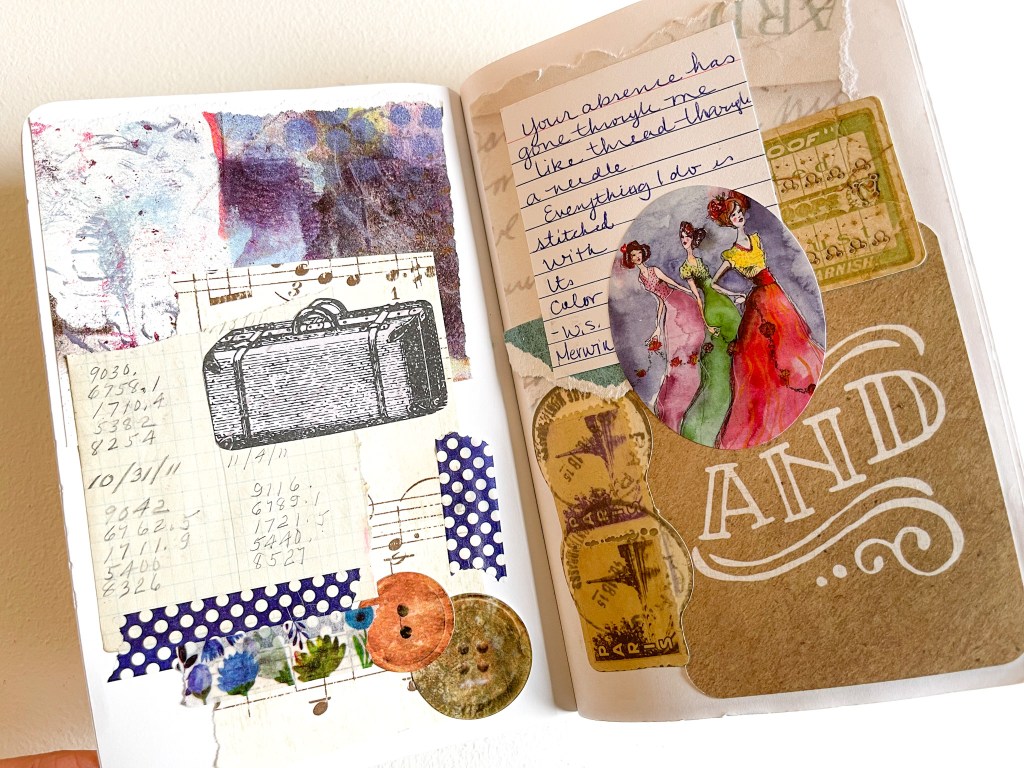 9030.
6758.1
1710.4
5382
8254
10/31/11
9042
6762.5
1711.9
5400
8326
11/4/11
9116.
6789.1
1721.5
5440.
8527
3
1
Your absence has
gone through me
like thread through
a needle
Everything I do is
stitched
with
Its
Color
-W.S.
Merwin
OOF"
RNISH.
AND
PARIS
PARIS